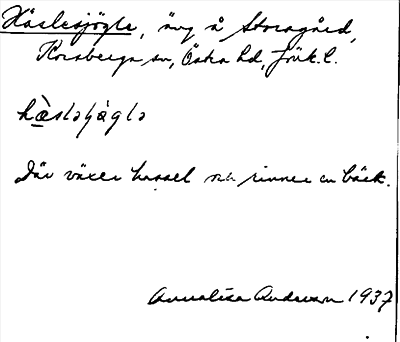 Häslesjögle, äng å Storagård,
Korsberga sn, Östra hd, Jönk. l.
hæ̀sləʃø̀glə
Där växer hassel och rinner en bäck.
Annalisa Anderson 1937